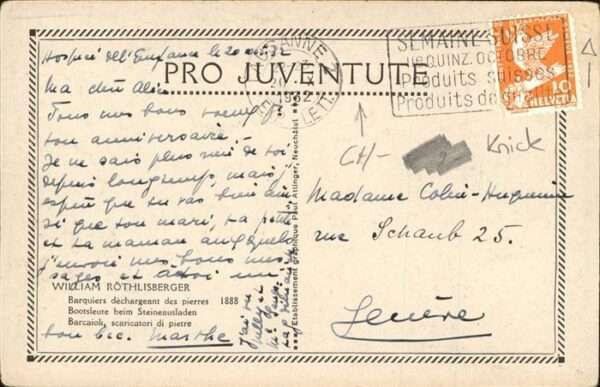 Hospice de l'Enfance le 20 août 32
PRO JUVENTUTE
Ma chère Alice
Tous mes bons voeux
ton anniversaire.
Je ne sais plus rien de toi
depuis longtemps, mais j'
espère que tu vas bien ain
si que ton mari, ta petite
et ta maman auxquels
j'envoie mes bons mes
sages et à toi un
WILLIAM RÖTHLISBERGER
Barquiers déchargeant des pierres 1888
Bootsleute beim Steineausladen
Barcaioli, scaricatori di pietre
bon bec. Marthe
Etablissement Graphique Paul Attinger, Neuchâtel
LAUSANNE
1932
SEMAINE SUISSE
OCTOBRE
Produits suisses
Produits de
HELVETIA
10
CH/-
Knick
Madame Colin-Huguenin
rue Schaub 25.
Genève